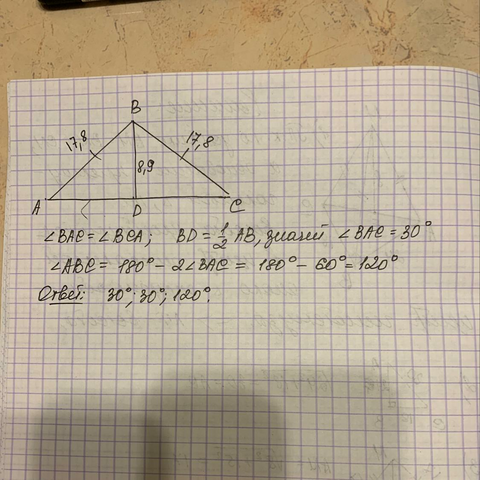 B
17,8 17,8
8,9
A D C
∠BAC = ∠BCA; BD = 1/2 AB, значит ∠BAC = 30°
∠ABC = 180° − 2∠BAC = 180° − 60° = 120°
Ответ: 30°; 30°; 120°.